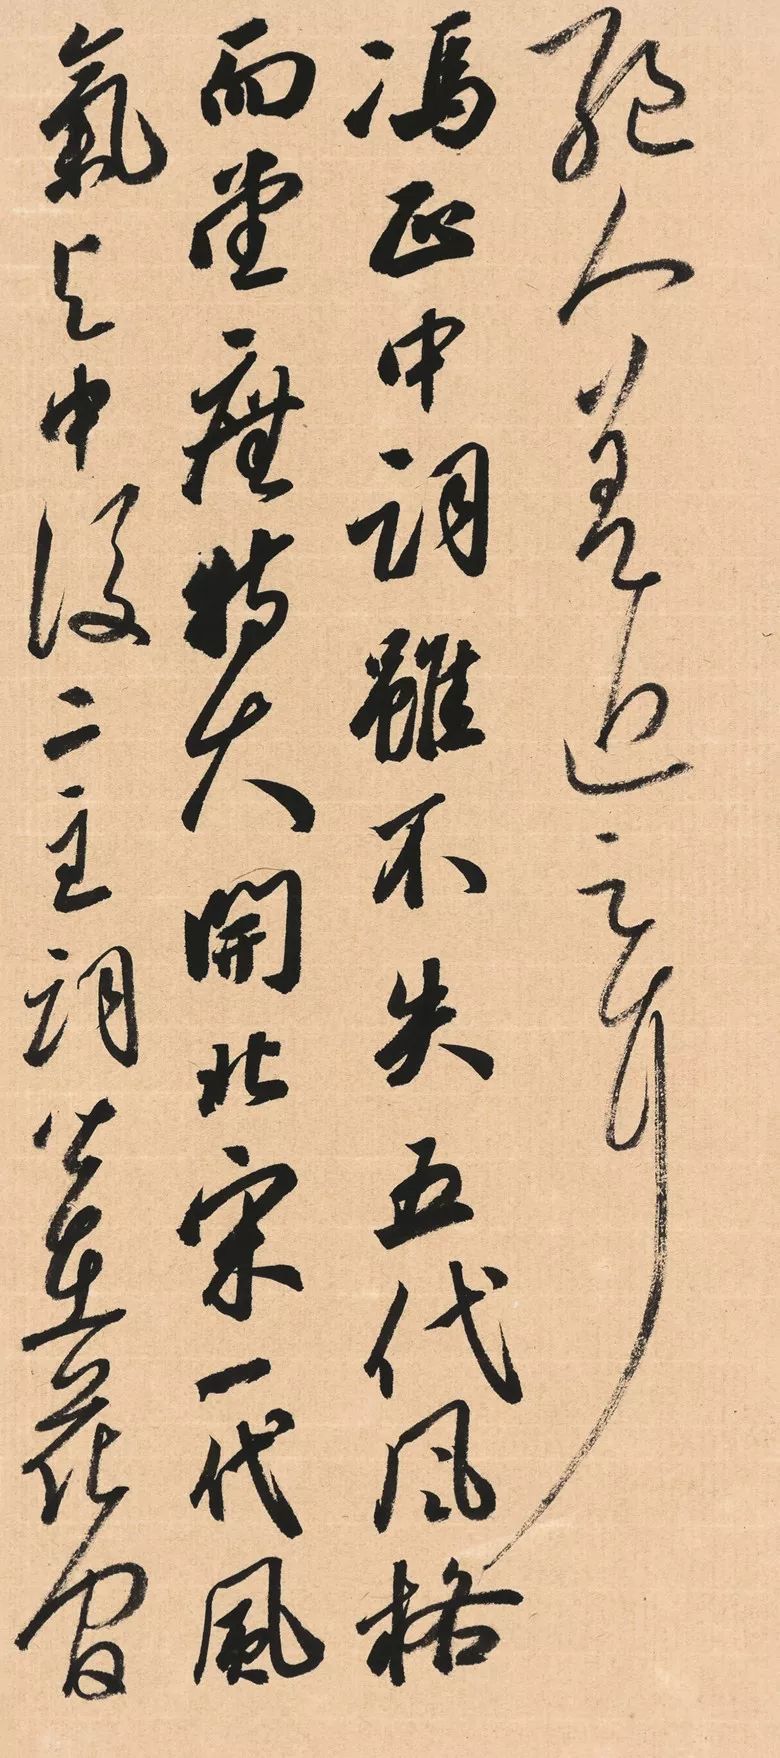 絕人差近之耳
馮正中詞雖不失五代风格
而堂廡特大開北宋一代風
氣与中後二主詞皆在花間